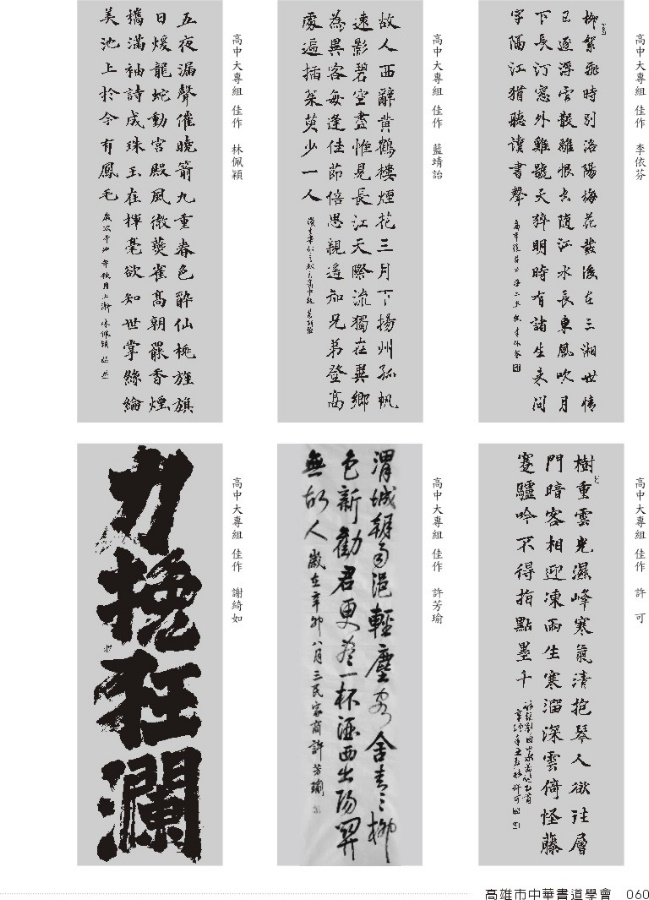 高中大專組 佳作 李依芬
柳絮飛時別洛陽梅花發後在三湘世情
已逐浮雲散離恨去隨江水長東風吹月
下長汀窓外雞號天猝明時有諸生來問
字隔江猶聽讀書聲
高中大專組 佳作 藍靖詒
故人西辭黃鶴樓煙花三月下揚州孤帆
遠影碧空盡惟見長江天際流獨在異鄉
為異客每逢佳節倍思親遥知兄弟登高
處遍插茱萸少一人
高中大專組 佳作 林佩穎
五夜漏聲催曉箭九重春色醉仙桃旌旗
日煖龍蛇動宮殿風微燕雀高朝罷香煙
攜滿袖詩成珠玉在揮毫欲知世掌絲綸
美池上於今有鳳毛
高中大專組 佳作 許可
樹重雲光濕峰寒氣清抱琴人欲往層
門暗客相迎凍雨生寒溜深雲倚怪藤
蹇驢吟不得指點墨千
高中大專組 佳作 許芳瑜
渭城朝雨浥輕塵客舍青〻柳
色新勸君更盡一杯酒西出陽關
無故人 歲在辛卯八月三民家商許芳瑜
高中大專組 佳作 謝綺如
力挽狂瀾
高雄市中華書道學會 060